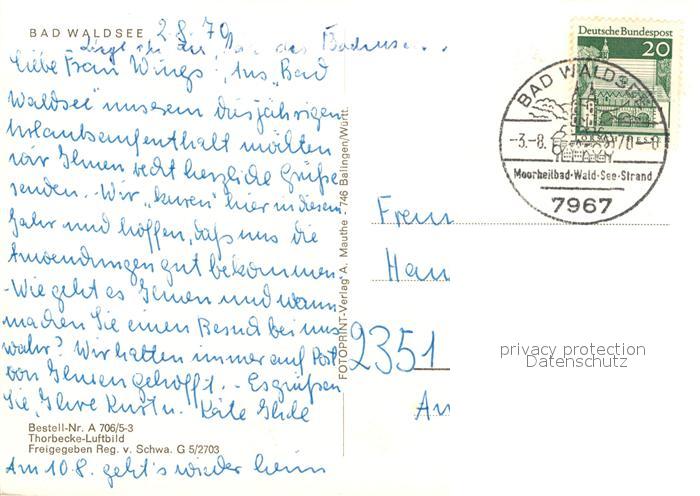 BAD WALDSEE, 2.8.70
Liebe Frau Wings! Aus „Bad
Waldsee" unserem diesjährigen
Urlaubsaufenthalt möchten
wir Ihnen recht herzliche Grüße
senden. - Wir „kuren" hier in diesem
Jahr und hoffen, daß uns die
Anwendungen gut bekommen.
- Wie geht es Ihnen und wann
machen Sie einen Besuch bei uns
wahr? Wir hatten immer auf Post
von Ihnen gehofft. - Es grüßen
Sie, Ihre Kurt u. Käte
Bestell-Nr. A 706/5-3
Thorbecke-Luftbild
Freigegeben Reg. v. Schwa. G 5/2703
Am 10.8. geht's wieder heim
FOTOPRINT-Verlag A. Mauthe - 746 Balingen/Württ.
Deutsche Bundespost
20
BAD WALDSEE
-3.-8.70-8
Moorheilbad-Wald-See-Strand
7967
2351
privacy protection
Datenschutz